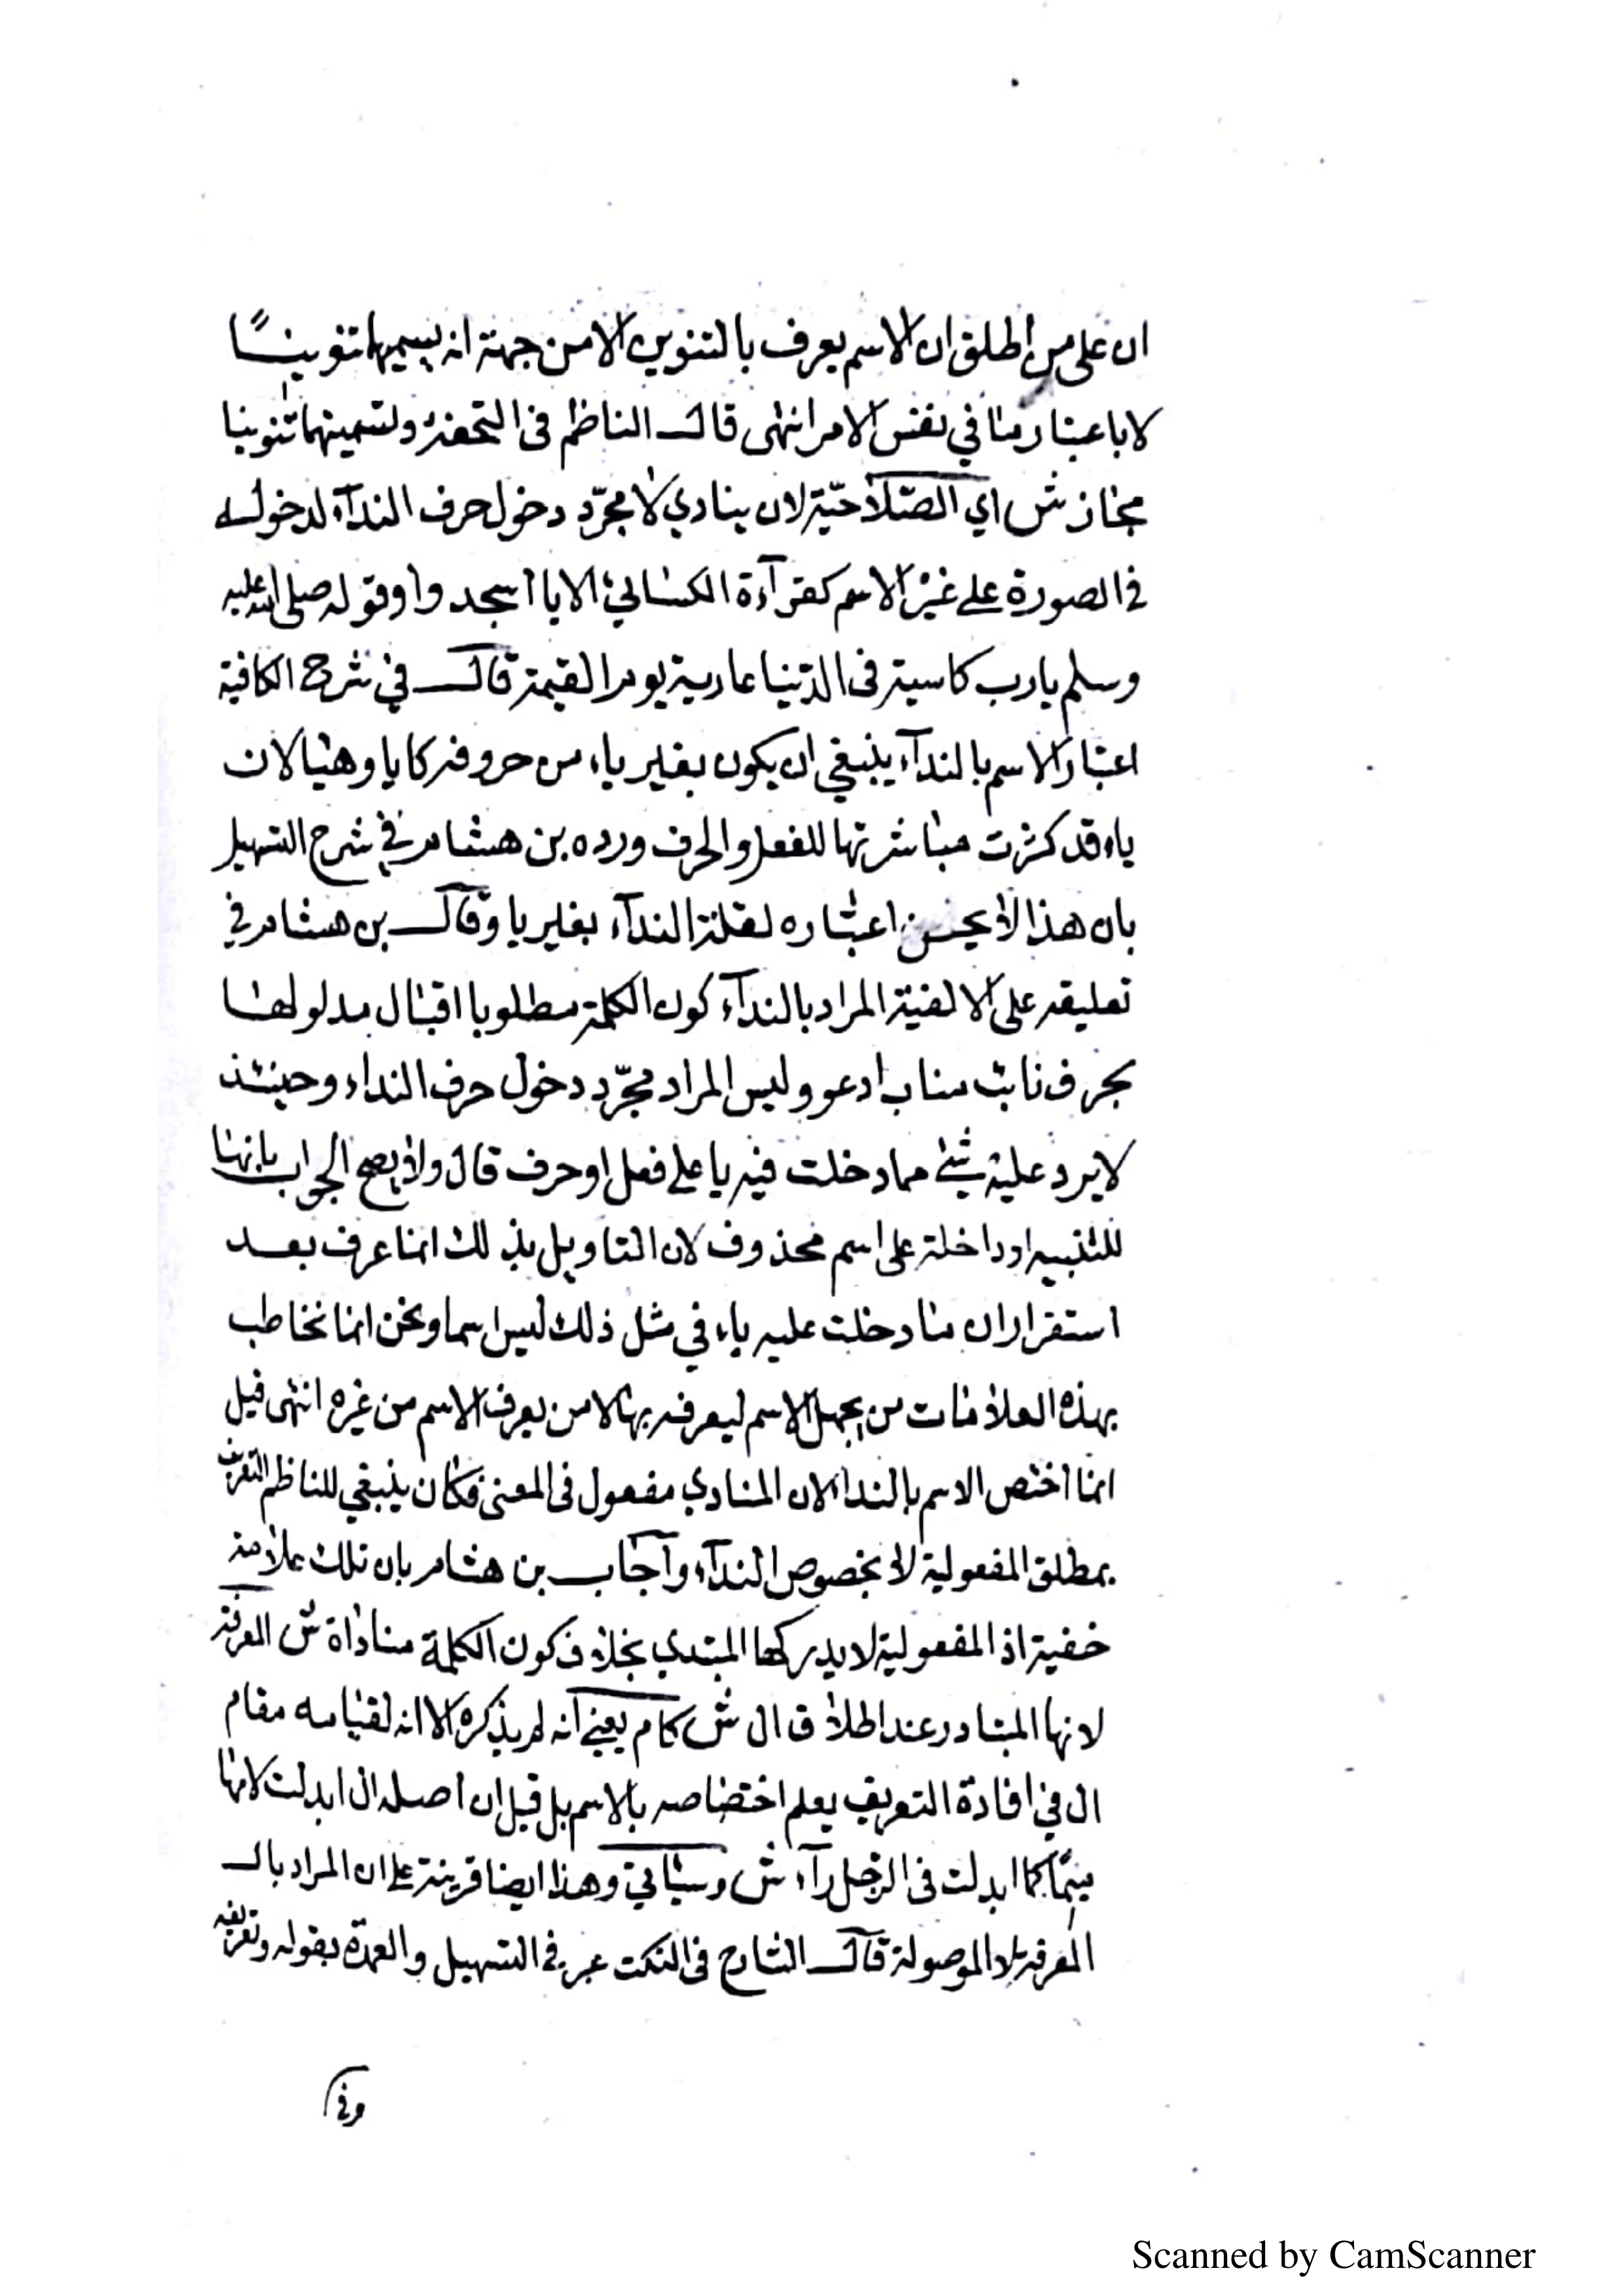 ان على من اطلق ان الاسم يعرف بالتنوين الا من جهة انه يسميها تنوينًا
لا باعتبار ما في نفس الامر انتهى قال الناظم فى التحفة وتسميتهما تنوينا
مجاز ش اي الصّلاحيّة لان ينادي لا مجرّد دخول حرف الندآء لدخوله
في الصورة على غير الاسم كقرآءة الكسائي الا يا اسجدوا وقوله صلى الله عليه
وسلم يا رب كاسية فى الدّنيا عارية يوم القيمة قال في شرح الكافية
اعتبار الاسم بالندآء ينبغي ان يكون بغير ياء من حروفه كايا وهيا لان
ياء قد كثرت مباشرتها للفعل والحرف ورده بن هشام في شرح التسهيل
بان هذا لا يحسن اعتباره لقلة الندآء بغير يا وقال بن هشام في
تعليقه على الالفية المراد بالندآء كون الكلمة مطلوبا اقبال مدلولها
بحرف نائب مناب ادعو وليس المراد مجرّد دخول حرف النداء وحينئذ
لا يرد عليه شئ مما دخلت فيه يا على فعل او حرف قال ولا يصح الجواب بانها
للتنبيه او داخلة على اسم محذوف لان التاويل بذلك انما عرف بعد
استقرار ان ما دخلت عليه ياء في مثل ذلك ليس اسما ونحن انما نخاطب
بهذه العلامات من يجهل الاسم ليعرفه بها لا من يعرف الاسم من غيره انتهى قيل
انما اختص الاسم بالندا لان المنادي مفعول فى المعنى فكان ينبغي للناظم التعريف
بمطلق المفعولية لا بخصوص الندآء وآجاب بن هشام بان تلك علامة
خفية اذ المفعولية لا يدركها المبتدي بخلاف كون الكلمة مناداة ش المعرفة
لانها المتبادر عند اطلاق ال ش كام يعني انه لم يذكره الا انه لقيامه مقام
ال في افادة التعريف يعلم اختصاصه بالاسم بل قيل ان اصله ال ابدلت لامها
ميمًا كما ابدلت فى الرّجل رآء ش وسيأتي وهذا ايضا قرينة على ان المراد بال
المعرفة لا الموصولة قال الشارح فى النكت عبر في التسهيل والعمدة بقوله وتعريفه
وفي
Scanned by CamScanner